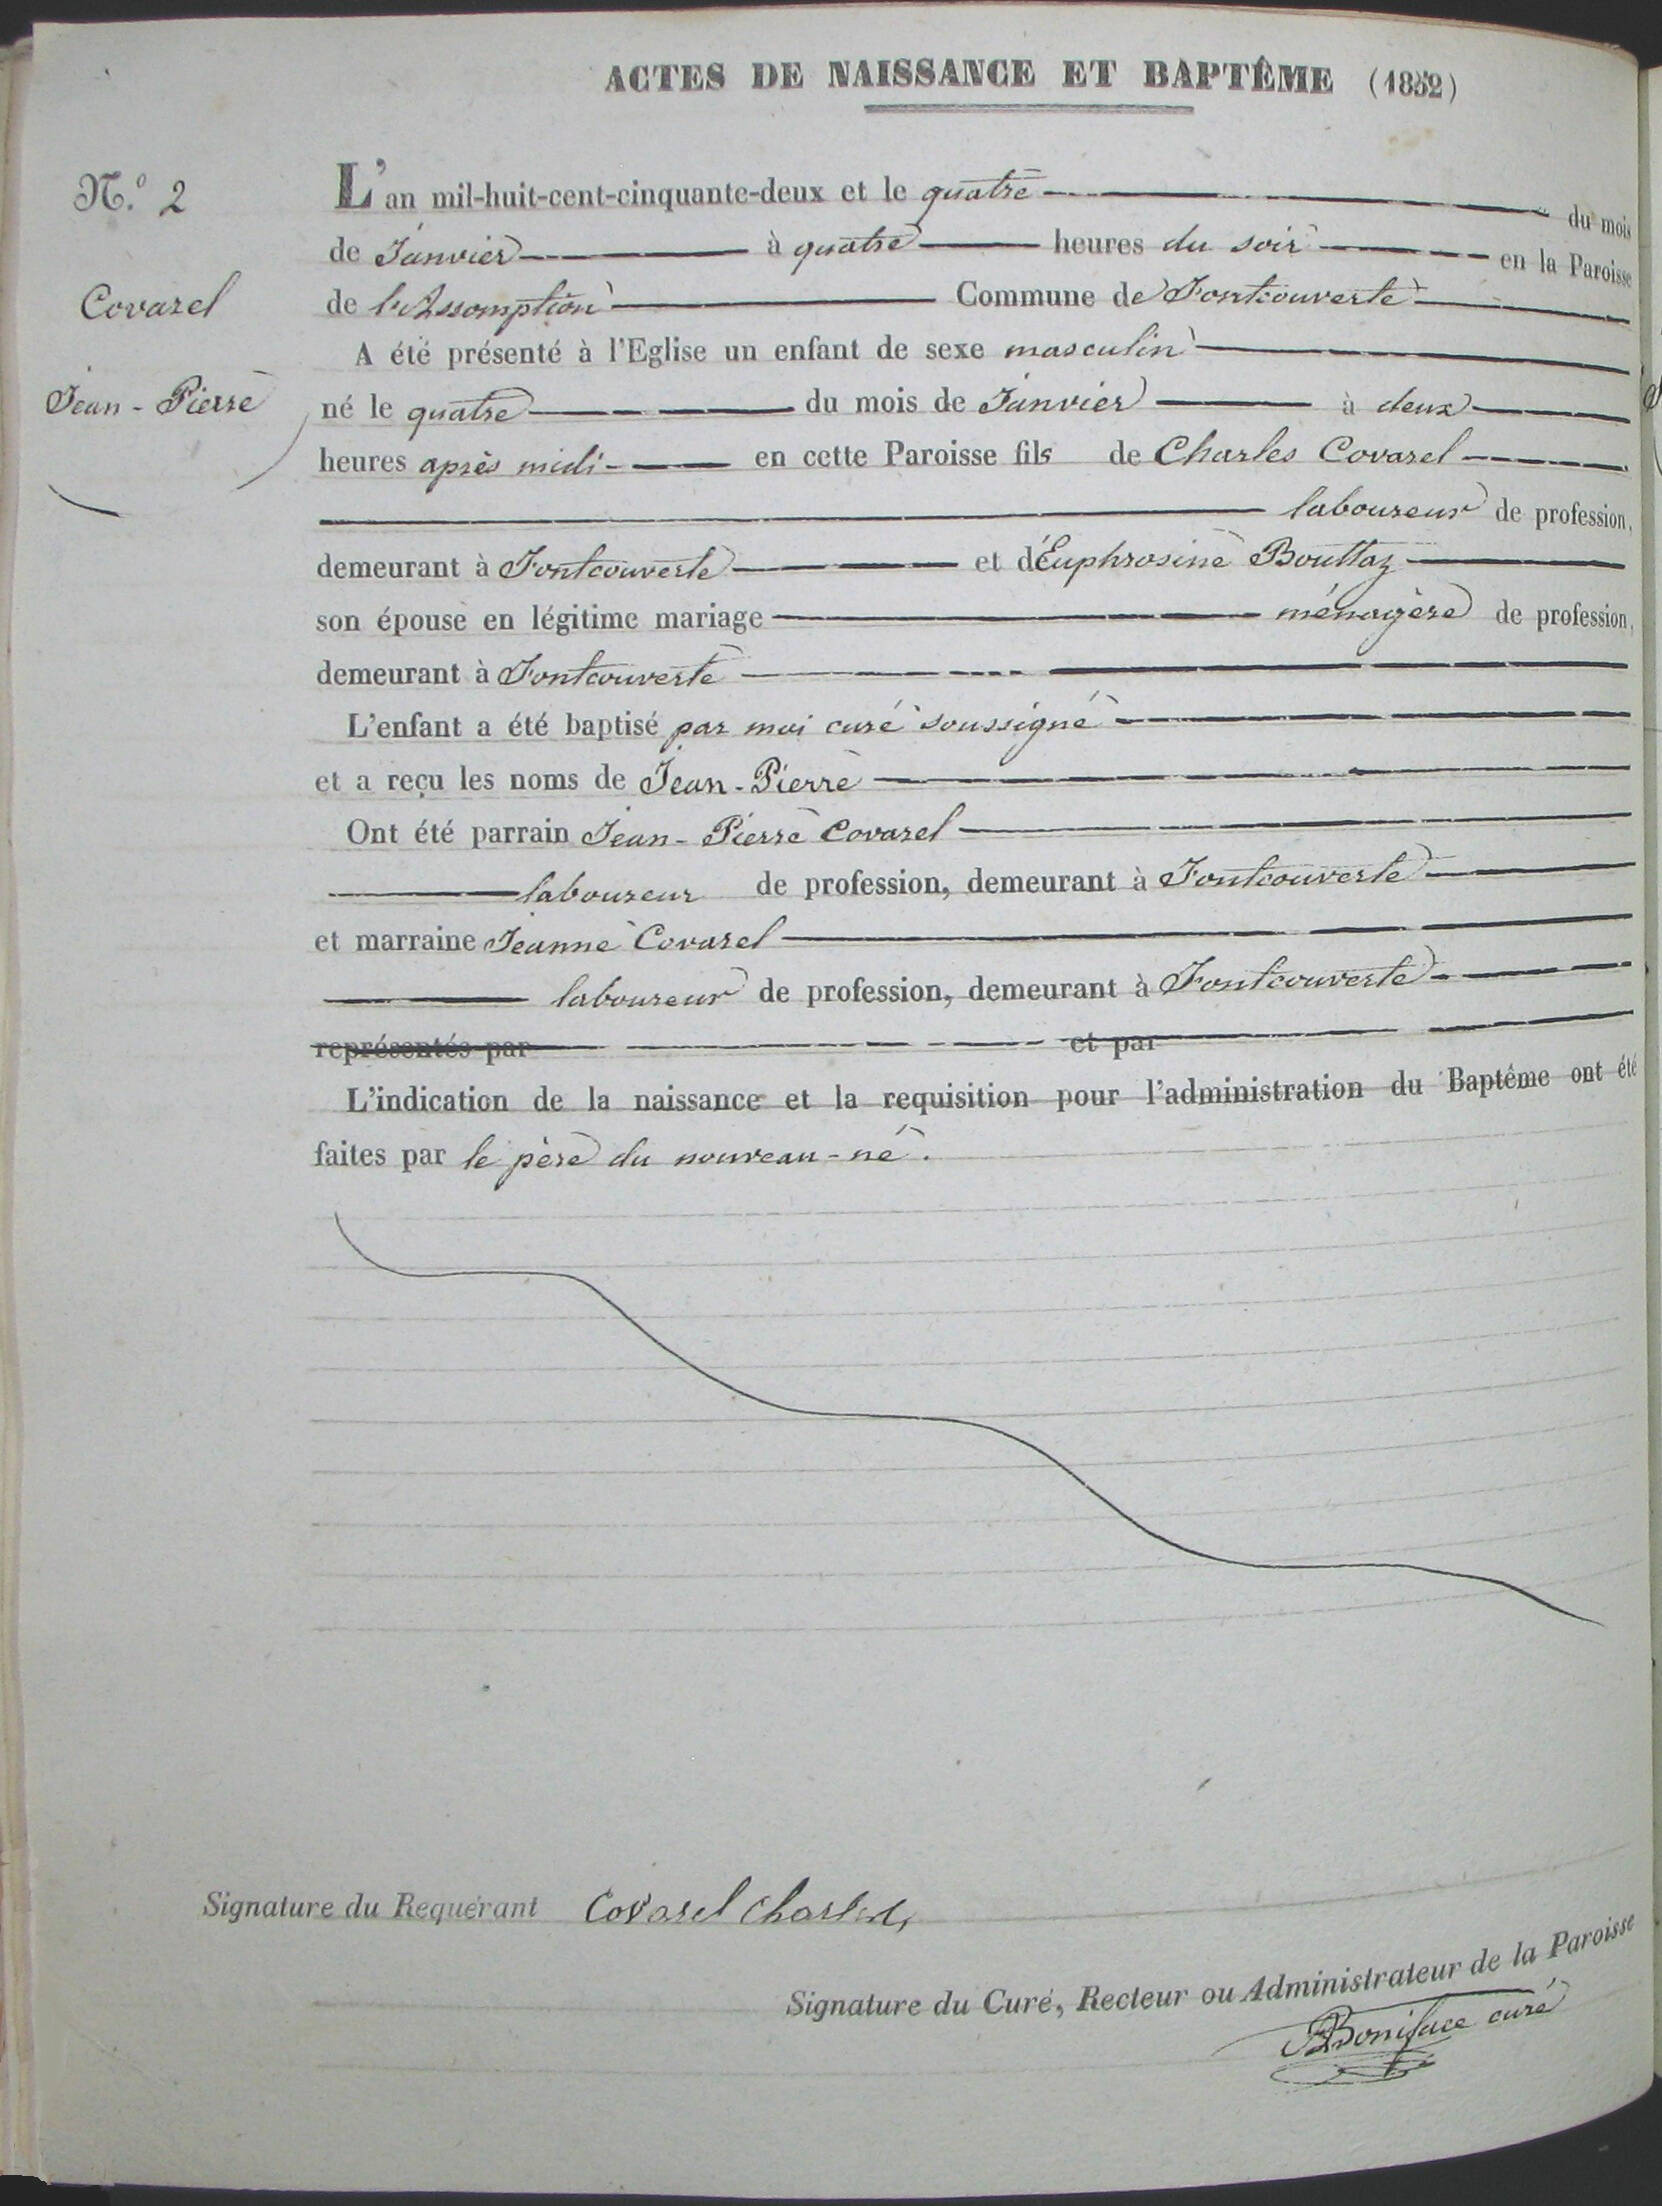 ACTES DE NAISSANCE ET BAPTÊME (1852)
N.º 2
Covarel
Jean-Pierre
L'an mil-huit-cent-cinquante-deux et le quatre du mois
de Janvier à quatre heures du soir en la Paroisse
de l'Assomption Commune de Fontcouverte
A été présenté à l'Eglise un enfant de sexe masculin
né le quatre du mois de Janvier à deux
heures après midi en cette Paroisse fils de Charles Covarel
laboureur de profession,
demeurant à Fontcouverte et d'Euphrosine Bouttaz
son épouse en légitime mariage ménagère de profession,
demeurant à Fontcouverte
L'enfant a été baptisé par moi curé soussigné
et a reçu les noms de Jean-Pierre
Ont été parrain Jean-Pierre Covarel
laboureur de profession, demeurant à Fontcouverte
et marraine Jeanne Covarel
laboureur de profession, demeurant à Fontcouverte
représentés par et par
L'indication de la naissance et la requisition pour l'administration du Baptême ont été
faites par le père du nouveau-né.
Signature du Requérant Covarel Charles
Signature du Curé, Recteur ou Administrateur de la Paroisse
Boniface curé